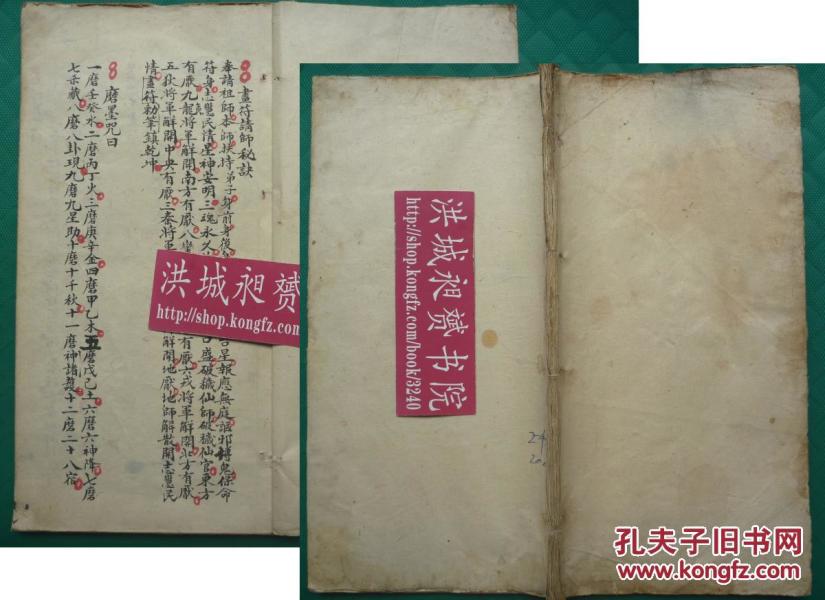 畫符請師秘訣
奉請祖師本師扶持弟子身前身後
台星報應無庭
保命
符
民清星神安明三魂永久
破穢仙師破穢仙官東方
有厭九龍將軍解開南方有厭八蠻
有厭六戎將軍解開北方有厭
五狄將軍解開中央有厭三秦將軍
解開地厭地師解散開志慧民
情畫符勅筆鎮乾坤
磨墨咒曰
一磨壬癸水二磨丙丁火三磨庚辛金四磨甲乙木五磨戊己土六磨六神降七磨
七
藏八磨八卦現九磨九星助十磨十千秋十一磨神
護十二磨二十八宿
洪城昶赟
http://shop.kongfz.com
洪城昶赟书院
http://shop.kongfz.com/book/3240
孔夫子旧书网
www.kongfz.com